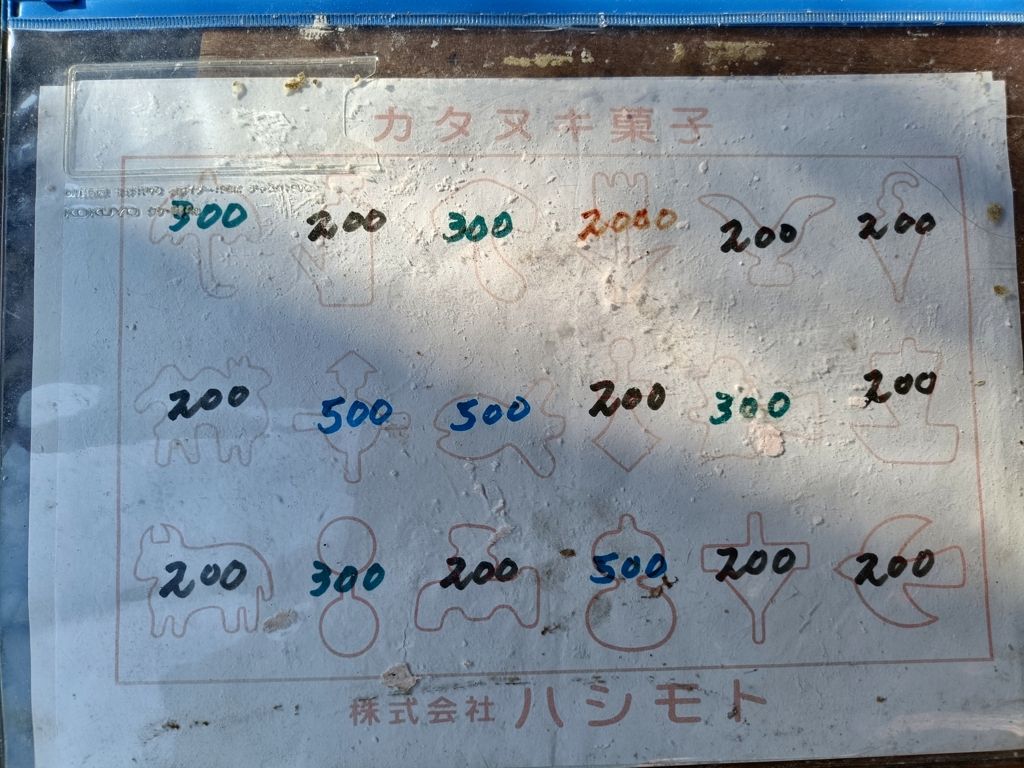 カタヌキ菓子
300 200 300 2000 200 200
200 500 500 200 300 200
200 300 200 500 200 200
株式会社 ハシモト